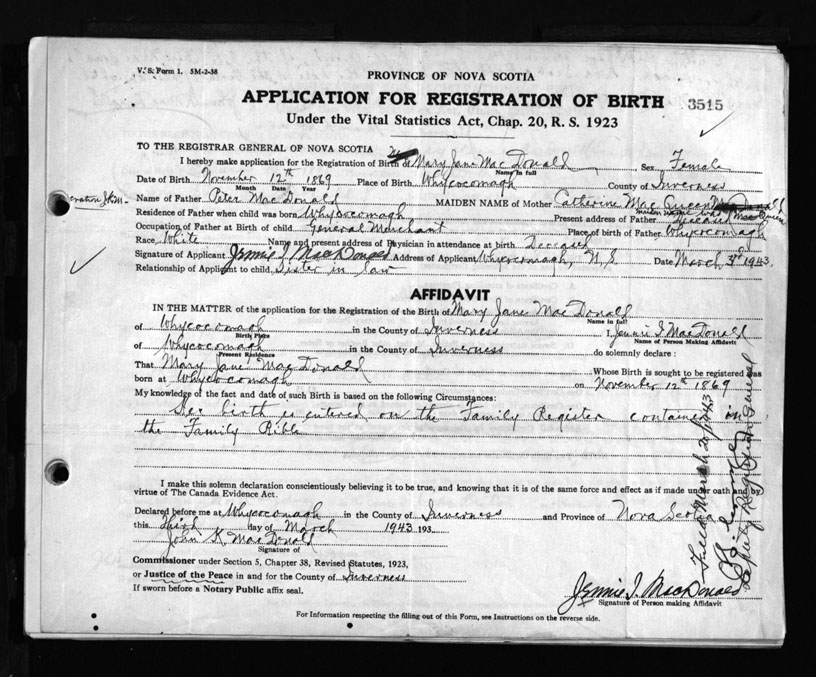 V. S. Form 1. 5M-2-38
PROVINCE OF NOVA SCOTIA
APPLICATION FOR REGISTRATION OF BIRTH 3515
Under the Vital Statistics Act, Chap. 20, R. S. 1923
TO THE REGISTRAR GENERAL OF NOVA SCOTIA
I hereby make application for the Registration of Birth of Mary Jane MacDonald Sex Female
Name in full
Date of Birth November 12th 1869 Place of Birth Whycocomagh County of Inverness
Month Date Year
Name of Father Peter MacDonald MAIDEN NAME of Mother Catherine MacQueen
maiden name was MacQueen
Residence of Father when child was born Whycocomagh Present address of Father Deceased
Occupation of Father at Birth of child General Merchant Place of birth of Father Whycocomagh
Race White Name and present address of Physician in attendance at birth Deceased
Signature of Applicant Jennie I. MacDonald Address of Applicant Whycocomagh, N.S. Date March 3rd 1943
Relationship of Applicant to child Sister in law
AFFIDAVIT
IN THE MATTER of the application for the Registration of the Birth of Mary Jane MacDonald
Name in full
of Whycocomagh in the County of Inverness I, Jennie I. MacDonald
Birth Place Name of Person Making Affidavit
of Whycocomagh in the County of Inverness do solemnly declare:
Present Residence
That Mary Jane MacDonald Whose Birth is sought to be registered was
born at Whycocomagh on November 12th 1869
My knowledge of the fact and date of such Birth is based on the following Circumstances:
Her birth is entered on the Family Register contained in
the Family Bible
I make this solemn declaration conscientiously believing it to be true, and knowing that it is of the same force and effect as if made under oath and by
virtue of The Canada Evidence Act.
Declared before me at Whycocomagh in the County of Inverness and Province of Nova Scotia
this Third day of March 1943 193
John K. MacDonald
Signature of
Commissioner under Section 5, Chapter 38, Revised Statutes, 1923,
or Justice of the Peace in and for the County of Inverness
If sworn before a Notary Public affix seal.
Jennie I. MacDonald
Signature of Person making Affidavit
For Information respecting the filling out of this Form, see Instructions on the reverse side.
Filed March 20/1943
Deputy Registrar General